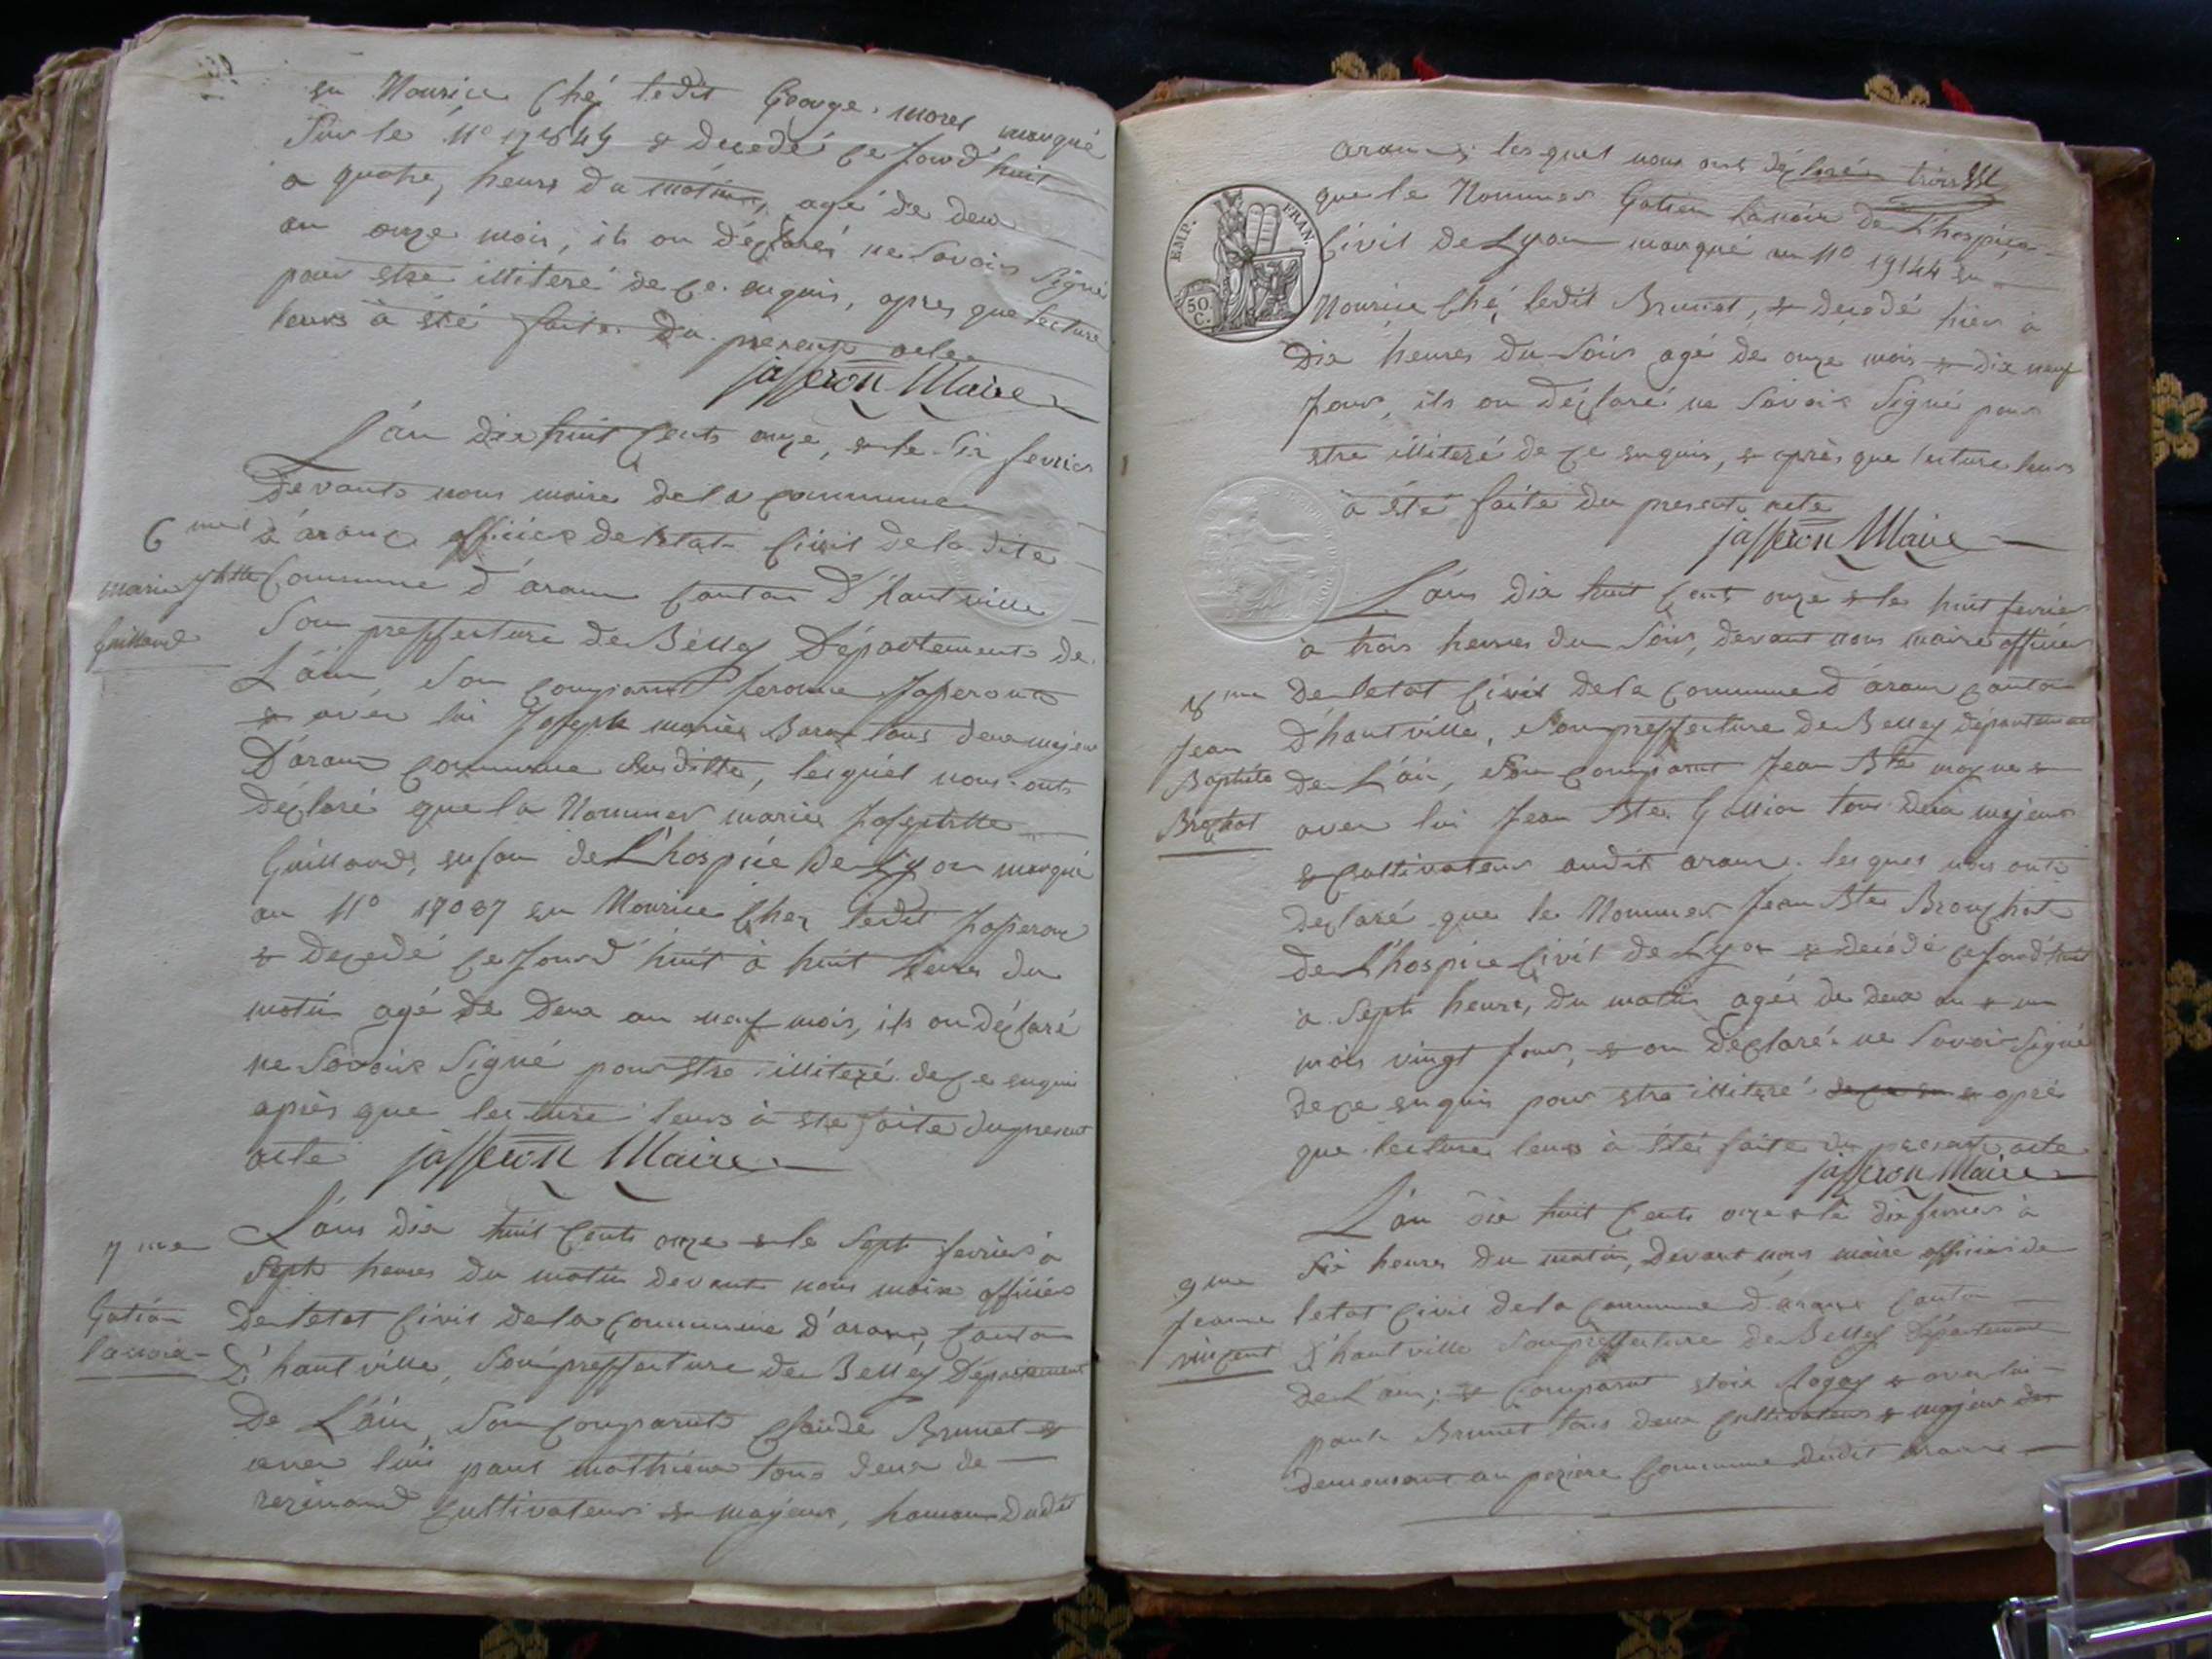 en Nourice Ché ledit George morel marqué
Sur le N° 17849 & decedé cejourd'huit
a quatre heurs du matin, agé de deux
an onze mois, ils on déclarés ne Savoir Signé
pour etre illiteré de ce enquis, apres que lecture
leurs à été faite du present acte
jasseron Maire
L'án dix huit Cents onze, & le Six fevrier
Devants nous maire de la Commune
6 me d'aranc officier de letat Civil de la dite
marie Jphtte Commune d'aranc Canton d'hautville
Guilland Sou preffecture de Belley Départements de
L'áin, Son Comparut Jerome Jasperont
& avec lui Joseph marie Borat tous deux majeur
D'aranc Commune Susditte, lesquel nous onts
déclaré que la Nommer marie Josephtte
Guilland, enfan de L'hospice de Lyon marqué
au N° 19087 en Nourice Chez ledit Jasperon
& decedé cejourd'huit à huit heurs du
matin agé de deux an neuf mois, ils on déclaré
ne Savoir Signé pour etre illiteré de ce enquis
après que lecture leurs à ete faite du present
acte jasseron Maire
7 me L'áns dix huit Cents onze & le Sept fevrier à
Sept heures du matin devants nous maire officier
Gatián de letat Civil de la Commune d'aranc, Canton
lanoir D'hautville, Sou preffecture de Belley Département
De L'áin, Son Comparuts Claude Brunet &
avec lui paul mathieux tous deux de
rezinand Cultivateurs & majeur, hamau dudit
aranc; lesquel nous onts déclarés trois
que le Nommer Gatien Lanoir de L'hospice
Civil de Lyon marqué au N° 19144 en
Nourice Ché ledit Brunet, & decedé hier à
Dix heures du Soir agé de onze mois & dix neuf
Jours, ils on déclaré ne Savoir Signé pour
etre illiteré de ce enquis, & après que lecture leurs
à été faite du presents acte
jasseron Maire
L'áns dix huit Cents onze & le huit fevrier
à trois heures du Soir, devant nous maire officier
8 me de letat Civil de la Commune d'aranc Canton
Jean D'hautville, Sou preffecture de Belley département
Baptiste de L'áin, Son Comparut Jean Bte moyne &
Brochat avec lui Jean Bte Gallion tous deux majeurs
& Cultivateurs audit aranc. lesques nous onts
declaré que le Nommer Jean Bte Brochat
de L'hospice Civil de Lyon & decédé cejourd'huit
à Sept heure, du matin agés de deux an & un
mois vingt Jours, & on déclaré ne Savoir Signé
de ce enquis pour etre illiteré de ce en & aprés
que lecture leurs à été faite du present acte
jasseron Maire
L'án dix huit Cents onze & le dix fevrier à
Six heures du matin, Devant nous maire officier de
9 me letat Civil de la Commune d'aranc Canton
Jeanne D'hautville Sou preffecture de Belley Département
vincent de L'áin; & Comparut & avec lui
paul Brunet tous deux Cultivateurs & majeur
demeurant au Commune dudit aranc
EMP. FRAN.
50 C.